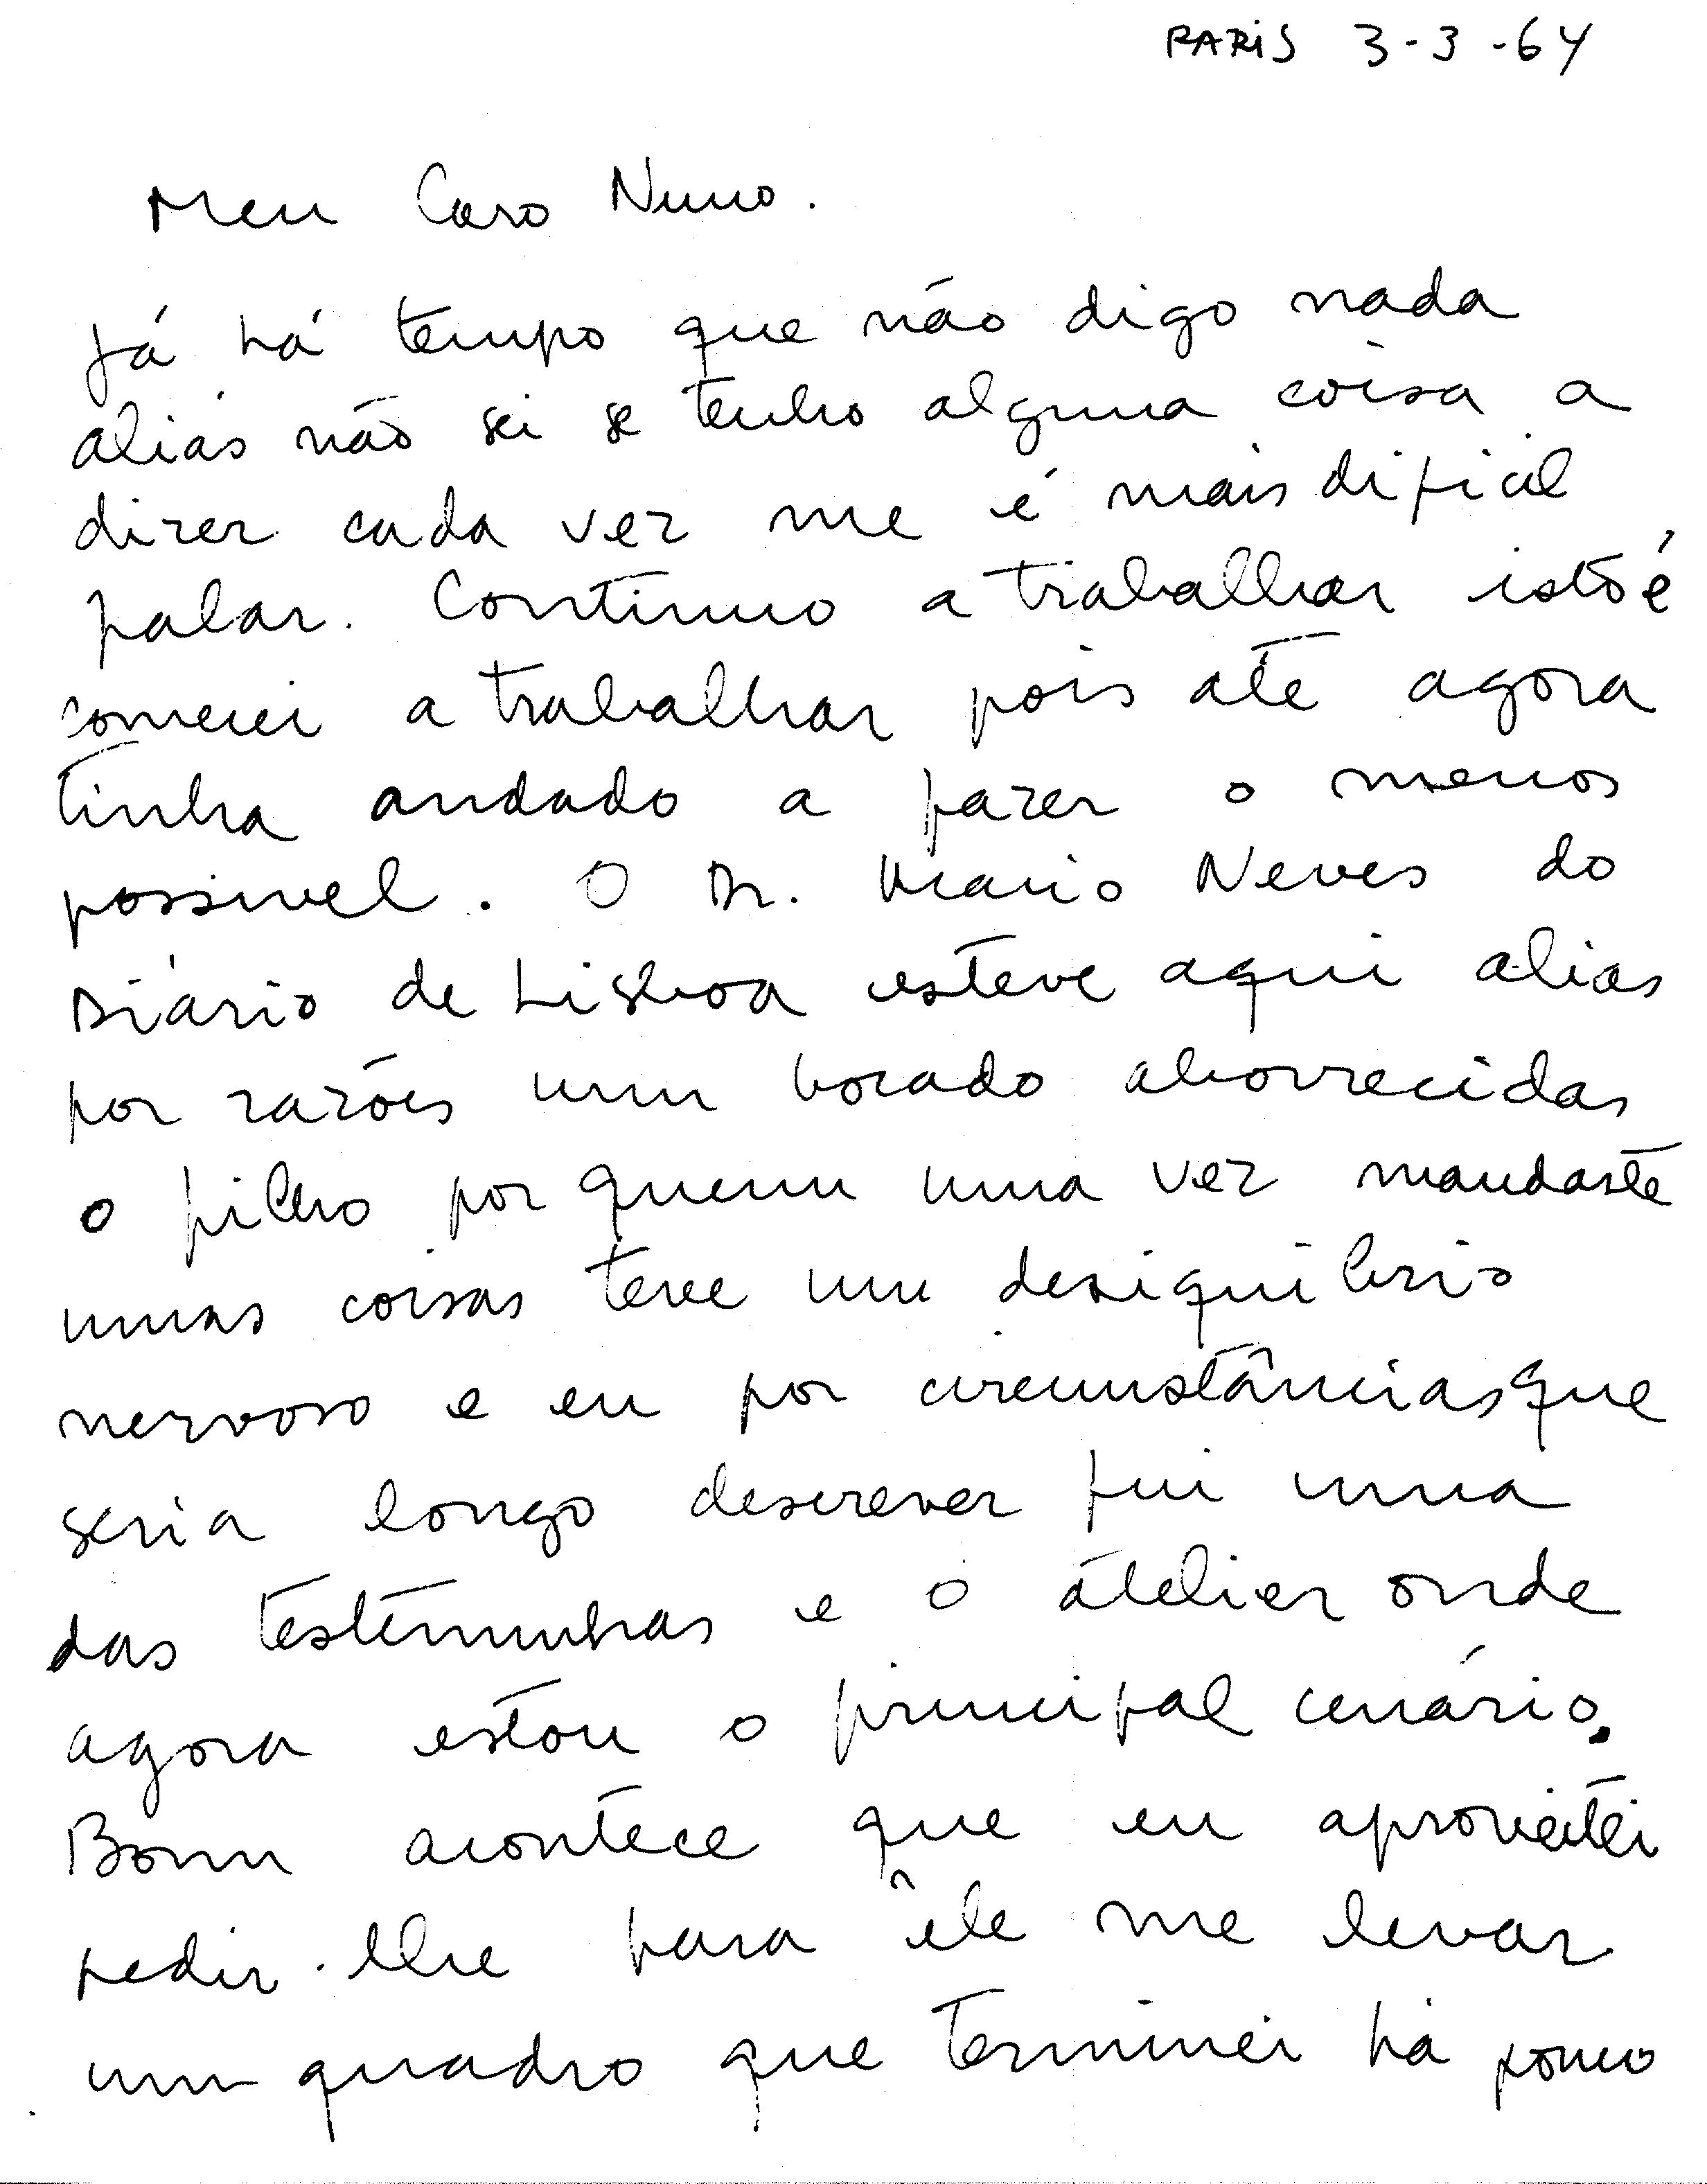 PARIS 3-3-64
Meu Caro Nuno.
Já há tempo que não digo nada
aliás não sei se tenho alguma coisa a
dizer cada vez me é mais dificil
falar. Continuo a trabalhar isto é
comecei a trabalhar pois até agora
tinha andado a fazer o menos
possivel. O Dr. Mario Neves do
Diário de Lisboa esteve aqui alias
por razões um bocado aborrecidas
o filho por quem uma vez mandaste
umas coisas teve um desiquilibrio
nervoso e eu por circunstâncias que
seria longo descrever fui uma
das testemunhas e o átelier onde
agora estou o principal cenário.
Bom acontece que eu aproveitei
pedir-lhe para êle me levar
um quadro que terminei há pouco